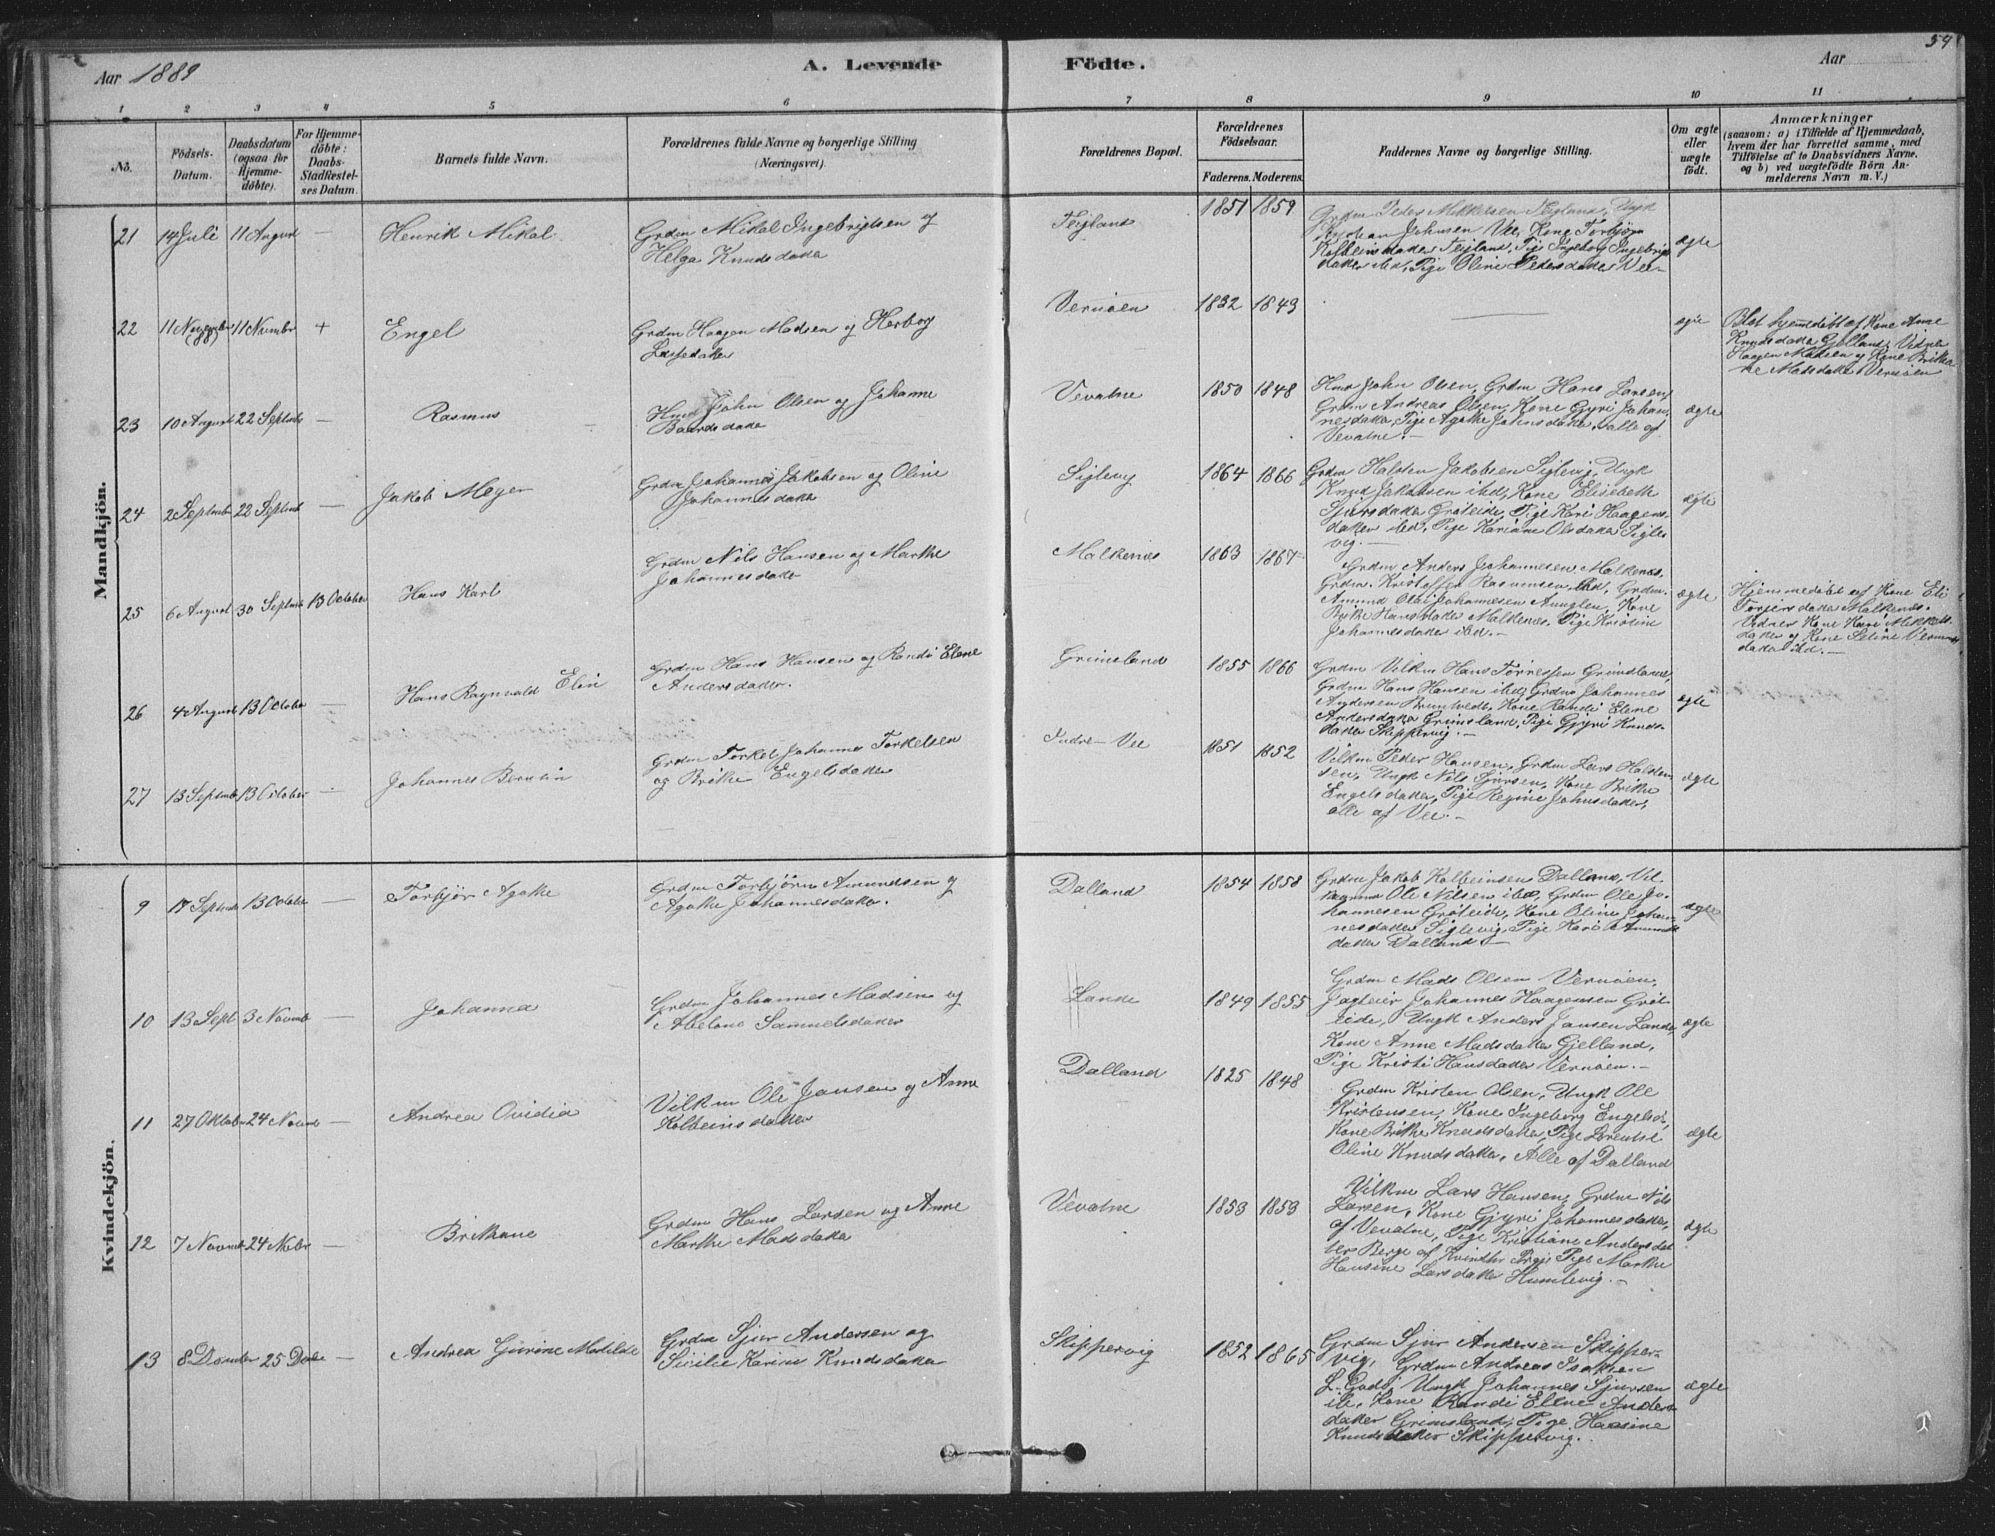 Aar 1889
A. Levende Födte.
Aar
59
1 2 3 4 5 6 7 8 9 10 11
No.
Födsels-Datum.
Daabsdatum (ogsaa for Hjemmedöbte).
For Hjemmedöbte: Daabs-Stadfæstelses Datum.
Barnets fulde Navn.
Forældrenes fulde Navne og borgerlige Stilling (Næringsvei).
Forældrenes Bopæl.
Forældrenes Födselsaar.
Faderens. Moderens.
Faddernes Navne og borgerlige Stilling.
Om ægte eller uægte födt.
Anmærkninger
(saasom: a) i Tilfælde af Hjemmedaab, hvem der har forrettet samme, med Tilföielse af to Daabsvidners Navne. og b) ved uægtefödte Börn Anmelderens Navn m. V.)
Mandkjön.
21 14 Juli 11 August — Henrik Mikal
Grdm Mikal Ingebrigtsen og
Helga Knudsdatter
Teigland 1851 1859
Grdm Peder Mikkelsen Teigland, Ungk
Johnsen Vee, Kone Torbjør
Kolbeinsdatter Teigland, Pige Ingeborg Ingebrigts
datter ibd, Pige Oline Pedersdatter Vee —
ægte
22 11 November (88) 11 Novmbr + Engel
Grdm Haagen Madsen og Herborg
Larsdatter
Vernøen 1832 1843
—
ægte
Blot hjemmedøbt af Kone Anne
Knudsdatter Gjelland, Vidner
Haagen Madsen og Kone Britha
ne Madsdatter Vernøen
23 10 August 22 Septmbr — Rasmus
Husm John Olsen og Johanne
Baardsdatter
Vevatne 1850 1848
Husm John Olsen, Grdm Hans Larsen,
Grdm Andreas Olsen, Kone Gjyri Johan-
nesdatter, Pige Agathe Johnsdatter, alle af
Vevatne. —
ægte
24 2 Septembr 22 Septmb — Jakob Meyer
Grdm Johannes Jakobsen og Oline
Johannesdatter
Siglevig 1864 1866
Grdm Halsten Jakobsen Siglevig, Ungk
Knud Jakobsen ibd, Kone Elisabeth
Sjursdatter Grøteide, Pige Kari Haagens-
datter ibd, Pige Olsdatter Sigle
vig. —
ægte
25 6 August 30 Septmb 13 October Hans Karl
Grdm Nils Hansen og Marthe
Johannesdatter
Malkenes 1863 1867
Grdm Anders Johannesen Malkenes,
Grdm Kristoffer Rasmussen ibd, Grdm
Amund Olai Johannesen, Kone
Brithe Hansdatter Malkenes, Pige Kristine
Johannesdatter ibd. —
ægte
Hjemmedøbt af Kone Eli
Torgersdatter Malkenes.
Vidner Kone Kari Mikkels
datter og Kone
datter ibd. —
26 4 August 13 October — Hans Ragnvald Elin
Grdm Hans Hansen og Randi Elene
Andersdatter.
Grimsland 1855 1866
Grdm Vilkm Hans Tørresen Grimsland,
Grdm Hans Hansen ibd, Grdm Johannes
Andersen, Kone Randi Elene
Andersdatter Grimsland, Pige Gjyri Knuds-
datter Skippervig. —
ægte
27 13 Septmb 13 October — Johannes
Grdm Torkel Johannes Torkelsen
og Brithe Engelsdatter
Indre Vee 1851 1852
Vilkm Peder Hansen, Grdm Lars Halsten
sen, Ungk Nils Sjursen, Kone Brithe
Engelsdatter, Pige Regine Johnsdatter,
alle af Vee. —
ægte
Kvindekjön.
9 17 Septmb 13 October — Torbjør Agathe
Grdm Torbjørn Amundsen og
Agathe Johannesdatter.
Dalland 1854 1858
Grdm Jakob Kolbeinsen Dalland, Vil-
kmand Ole Nilsen ibd, Grdm Ole Jo-
hannesen Grøteide, Kone Oline Johan-
nesdatter Siglevig, Pige Kari Amunds
datter Dalland —
ægte
10 13 Sept 3 Novmb — Johanna
Grdm Johannes Madsen og
Abelone Samuelsdatter
Lande 1849 1855
Grdm Mads Olsen Vernøen,
Johannes Haagensen Grøt
eide, Ungk Anders Jansen Lande,
Kone Anne Madsdatter Gjelland,
Pige Kristi Hansdatter Vernøen. —
ægte
11 27 Oktobr 24 Novmb — Andrea Ovidia
Vilkm Ole Jansen og Anne
Kolbeinsdatter
Dalland 1825 1848
Grdm Kristen Olsen, Ungk Ole
Kristensen, Kone Ingeborg Engelsd,
Kone Brithe Knudsdatter, Pige Lorentse
Oline Knudsdatter, Alle af Dalland
ægte
12 7 Novmb 24 Nvbr — Brithane
Grdm Hans Larsen og Anne
Marthe Madsdatter
Vevatne 1853 1853
Vilkm Lars Hansen, Grdm Nils
Larsen, Kone Gjyri Johannesdatter,
af Vevatne, Pige Kristiane Andersdat
ter Berge af Pige Marthe
Hansine Larsdatter Humlevig. —
ægte
13 8 Desmber 25 Desbr — Andrea Gurine Matilde
Grdm Sjur Andersen og
Sicilie Karine Knudsdatter
Skippervig 1852 1865
Grdm Sjur Andersen Skipper-
vig, Grdm Andreas Isaksen
L. Godø, Ungk Johannes Sjursen
ib, Kone Randi Elene Anders
datter Grimsland, Pige Hansine
Knudsdatter Skippervig.
ægte